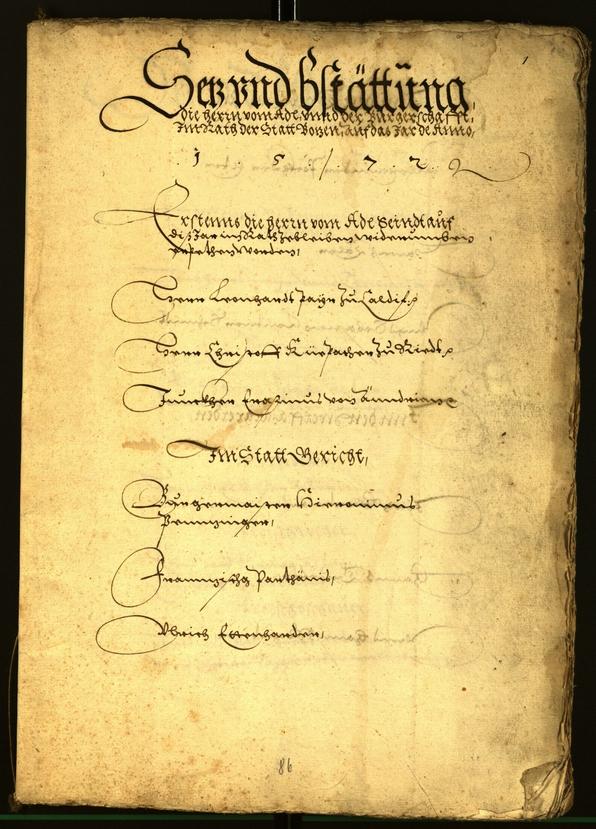 1
Sez vnd bstättūng
die herrn vom Adl, vnnd der Burgerschafft,
Im Rath der Statt Bozen, auf das Jar de Anno,
1 5 / 7 2
Erstenns die herrn vom Adl Seindt auf
diß Jar im Rath zebleiben widerumben
erpethen worden,
Herr Leonhardt Payr zu Caldif
Herr Christoff Küepacher zu Riedt
Junckher Erasmus von Änndrian
Im Statt Gericht,
Burgermaister Hieronimus
Prunninger,
Franntzischg Parthänis,
Vlrich Ettenharder,
86